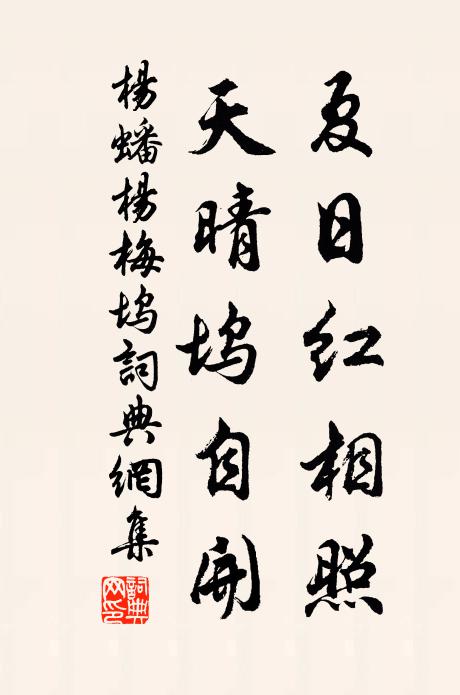 夏日红相照
天晴坞自開
楊蟠楊梅坞詞典網集
詞典网印